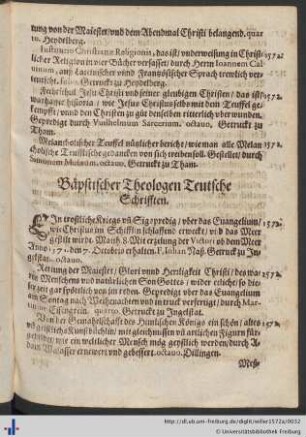 tung von der Maiestet vnd dem Abendmal Christi belangend. quar
to. Heydelberg.
Institutio Christianæ Religionis, das ist/ vnderweisung in Christ- 1572.
licher Religion in vier Bücher verfasset/ durch Herrn Ioannem Cal
uinum, auß Lateinischer vnnd Frantzösischer Sprach trewlich ver-
teutscht. folio. Getruckt zu Heydelberg.
Jesu Christi vnd seiner gleubigen Christen/ das ist/ 1572.
warhaffte histori/ wie Jesus Christus selbs mit dem Teuffel ge-
kempfft/ vnnd den Christen zu gut denselben ritterlich vberwunden.
Gepredigt durch Getruckt zu
Tham.
Melancholischer Teuffel nützlicher bericht/ wie man alle Melan 1572.
cholische Teufflische gedancken von sich treiben soll. Gestellet/ durch
Simonem Musæum. octauo. Getruckt zu Tham.
Bäpstischer Theologen Teutsche
Schrifften.
EIn trostliche Kriegs vnd Sig predig/ vber das Euangelium/ 1572.
wie Christus im Schifflin schlaffend erweckt/ vnd das Meer
gestilt wirdt. Matth. 8. Mit erzelung der Victori ob dem Meer
Anno 1571. den 7. Octobris erhalten. F. Iohan Naß. Getruckt zu In-
gelstat. octauo.
Rettung der Maiestet/ Glori vnnd Herrligkeit Christi/ des wa- 1572.
ren Menschens vnd natürlichen Son Gottes/ wider etliche/ so die-
ser zeit gar spötlich von jm reden. Gepredigt vber das Euangelium
am Sontag nach Weihenachten vnd in truck verfertigt/ durch Mar-
tinum Eisengrein. quarto. Getruckt zu Ingelstat.
Von der Gemahelschafft des Himlischen Königs ein schön/ altes 1572.
vnd geistlichs Kunstbüchlin/ mit gleichnussen vnd artlichen Figurn für-
gebildet/ wie ein weltlicher Mensch mög geystlich werden/ durch A-
dam Walasser ernewert vnd gebessert. octauo. Dilingen.
Meß-
http://dl.ub.uni-freiburg.de/diglit/willer1572a/0032
© Universitätsbibliothek Freiburg